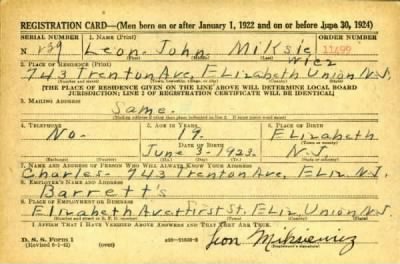 REGISTRATION CARD—(Men born on or after January 1, 1922 and on or before June 30, 1924)
SERIAL NUMBER 1. NAME (Print) ORDER NUMBER
Leon John Miksie 11499
wiez
(First) (Middle) (Last)
2. PLACE OF RESIDENCE (Print)
743 Trenton Ave, Elizabeth Union N.J.
[THE PLACE OF RESIDENCE GIVEN ON THE LINE ABOVE WILL DETERMINE LOCAL BOARD
JURISDICTION; LINE 2 OF REGISTRATION CERTIFICATE WILL BE IDENTICAL]
3. MAILING ADDRESS
Same.
4. TELEPHONE 5. AGE IN YEARS 6. PLACE OF BIRTH
No. 19 Elizabeth
DATE OF BIRTH
June 3 1923. N.J.
7. NAME AND ADDRESS OF PERSON WHO WILL ALWAYS KNOW YOUR ADDRESS
Charles 743 Trenton Ave, Eliz N.J.
8. EMPLOYER'S NAME AND ADDRESS
Barrett's
9. PLACE OF EMPLOYMENT OR BUSINESS
Elizabeth Ave & First St. Eliz Union N.J.
I AFFIRM THAT I HAVE VERIFIED ABOVE ANSWERS AND THAT THEY ARE TRUE.
D. S. S. Form 1
(over)
Leon Miksiewiez